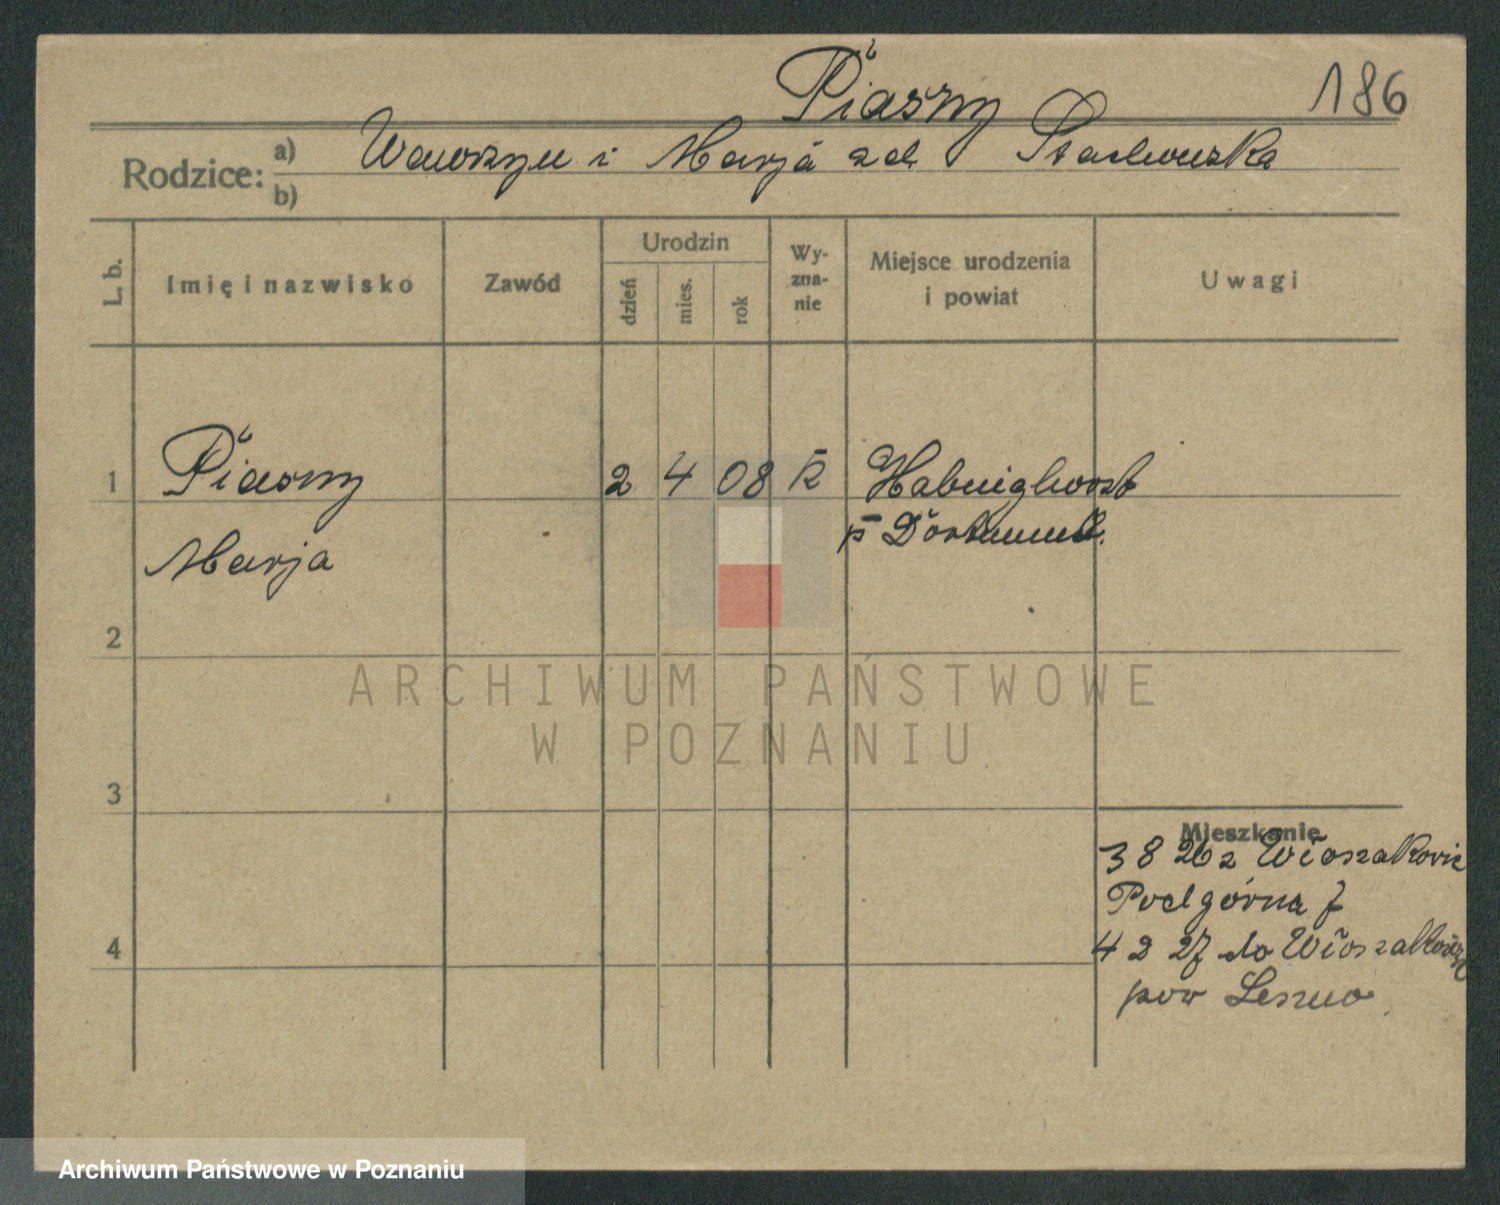 Piasny 186
Rodzice: a) Wawrzyn i Marja zd Stachowska
b)
L. b. Imię i nazwisko Zawód Urodzin dzień mies. rok Wy-zna-nie Miejsce urodzenia i powiat Uwagi
1 Piasny 2 4 08 k Habnighorst
Marja p Dortmund.
2
3
Mieszkanie
3 8 26 z Włoszakowic
Podgórna 7
4 4 2 27 do Włoszakowic
pow Leszno
ARCHIWUM PAŃSTWOWE
W POZNANIU
Archiwum Państwowe w Poznaniu